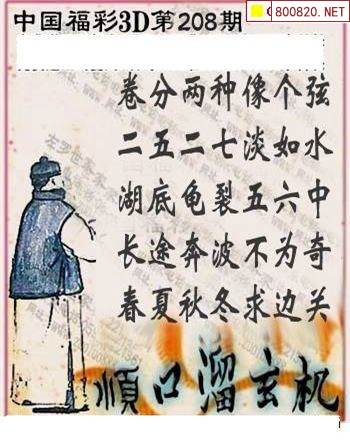 800820.NET
中国福彩3D第208期
卷分两种像个弦
二五二七淡如水
湖底龟裂五六中
长途奔波不为奇
春夏秋冬求边关
顺口溜玄机